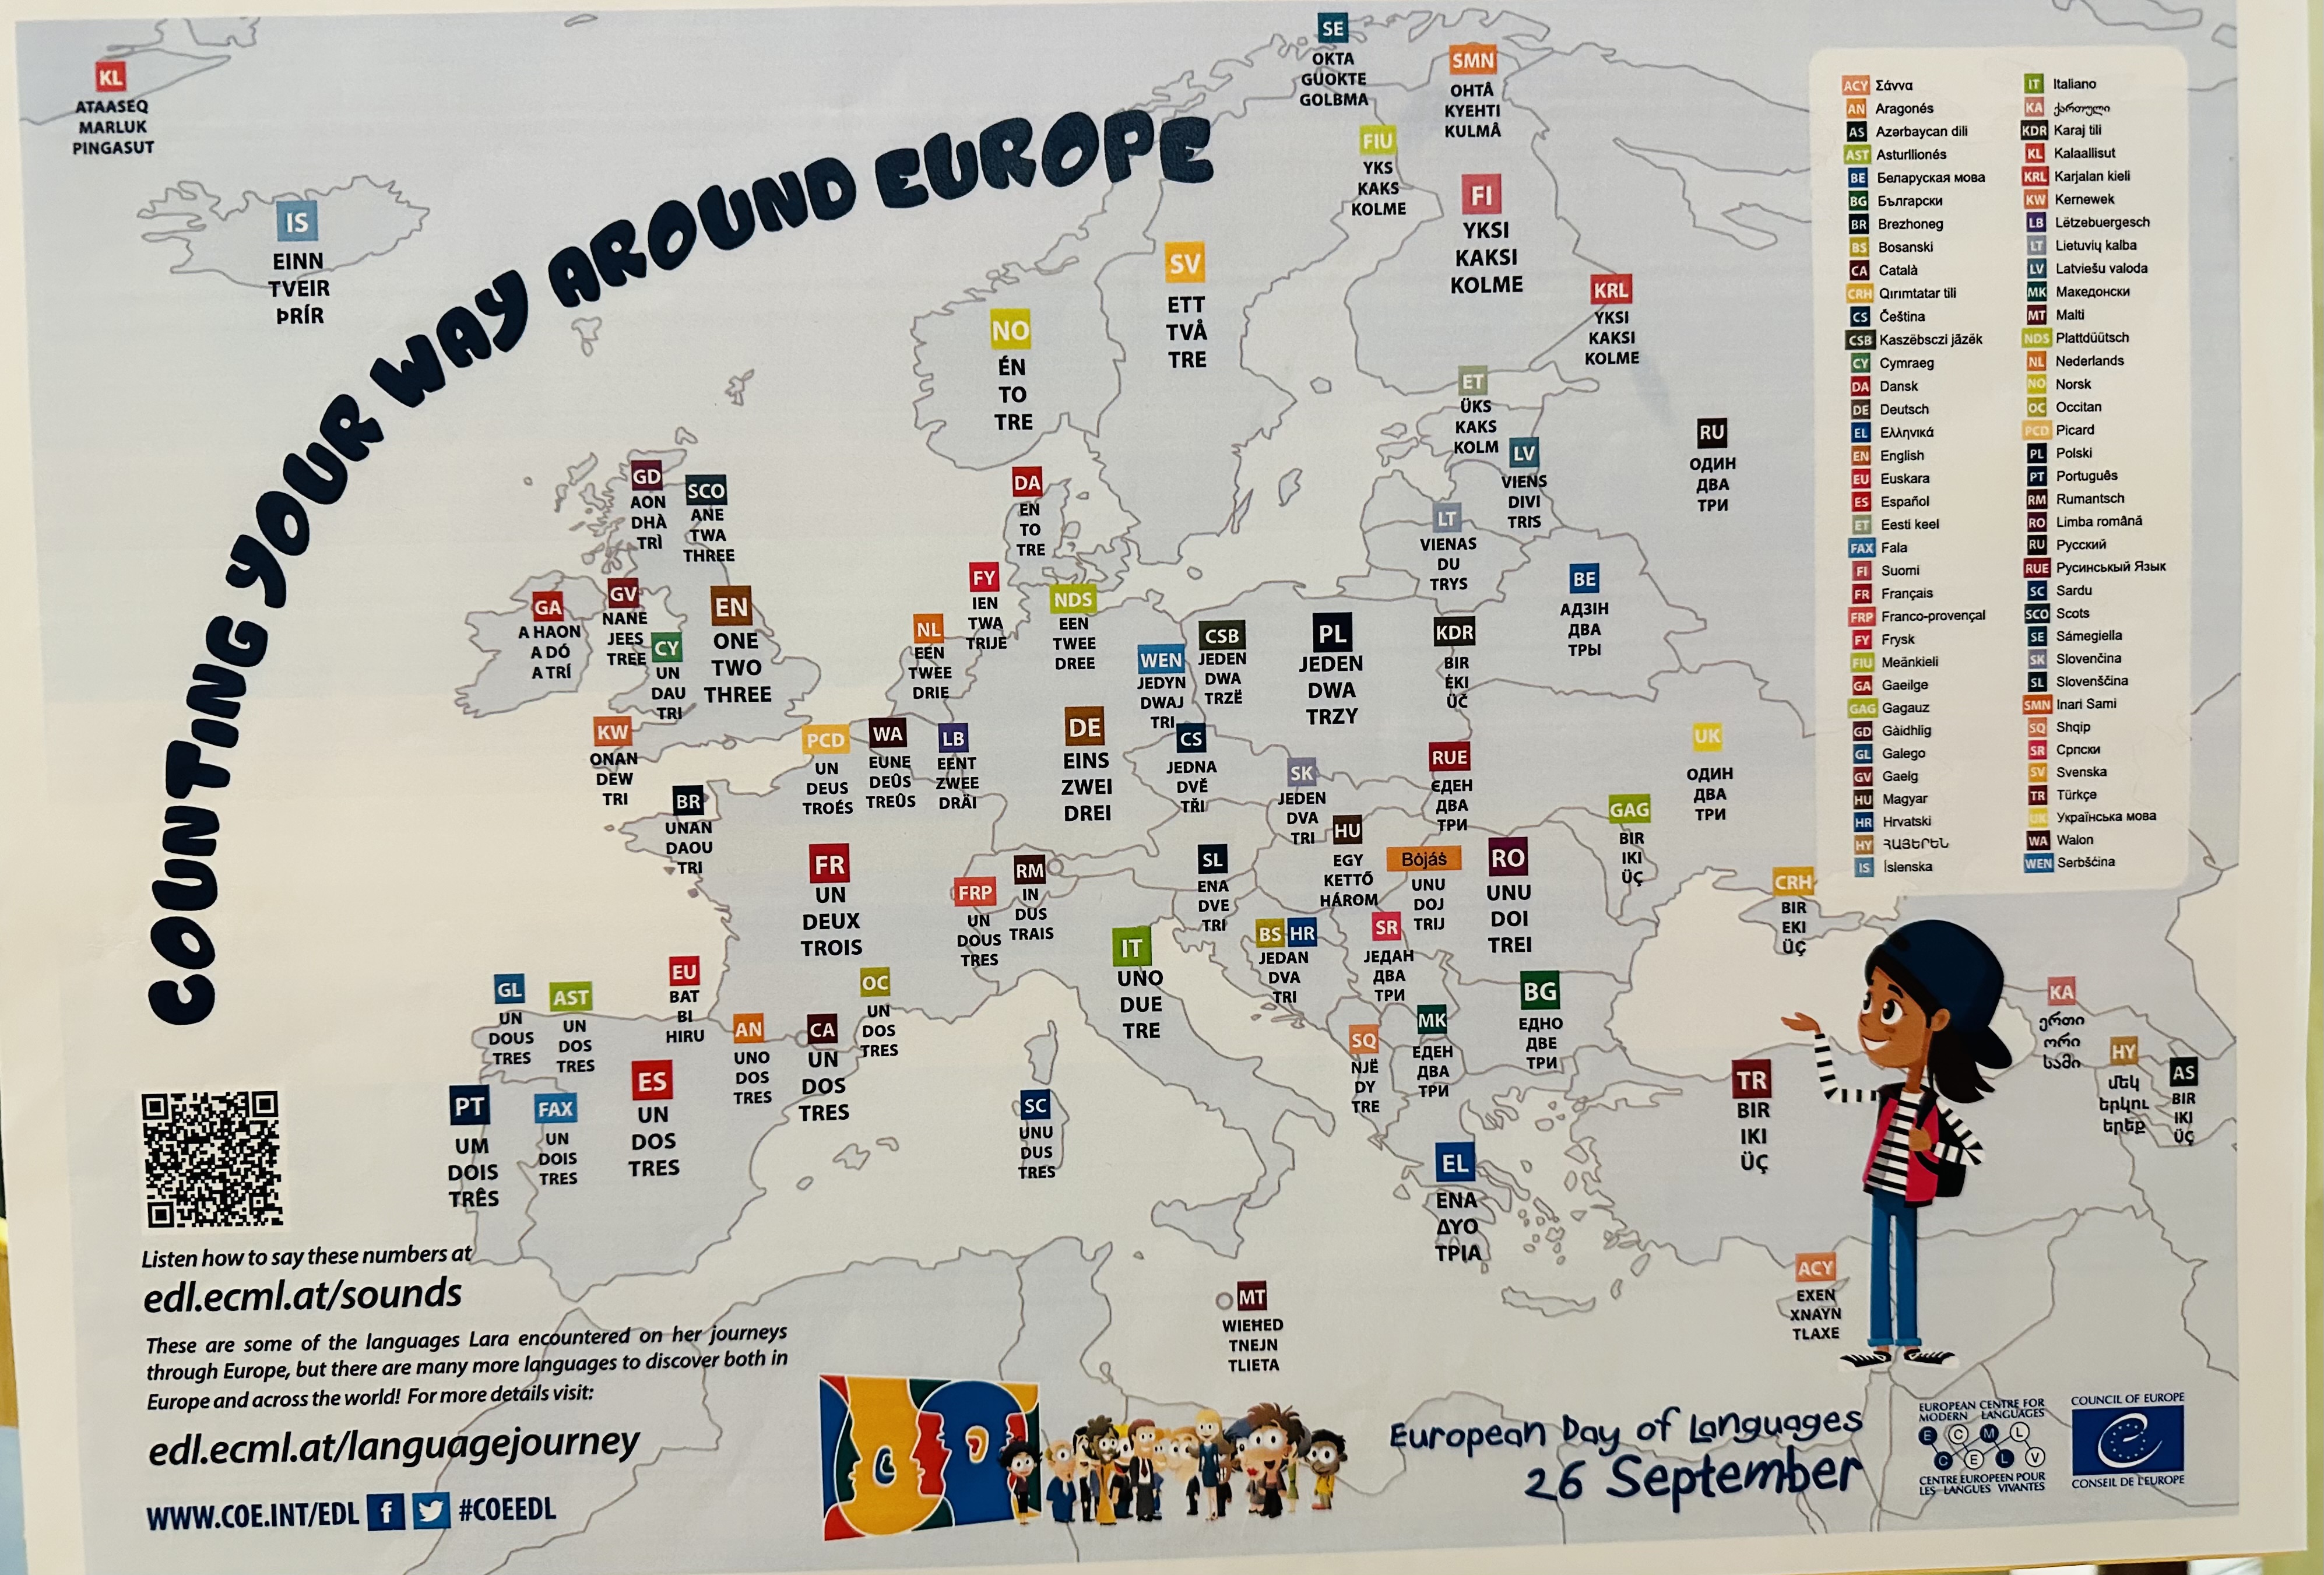 COUNTING YOUR WAY AROUND EUROPE
KL
ATAASEQ
MARLUK
PINGASUT
IS
EINN
TVEIR
ÞRÍR
SE
OKTA
GUOKTE
GOLBMA
SMN
OHTÂ
KYEHTI
KULMÂ
FIU
YKS
KAKS
KOLME
FI
YKSI
KAKSI
KOLME
SV
ETT
TVÅ
TRE
NO
ÉN
TO
TRE
KRL
YKSI
KAKSI
KOLME
ET
ÜKS
KAKS
KOLM
LV
VIENS
DIVI
TRIS
LT
VIENAS
DU
TRYS
RU
ОДИН
ДВА
ТРИ
GD
AON
DHÀ
TRÌ
SCO
ANE
TWA
THREE
DA
EN
TO
TRE
GA
A HAON
A DÓ
A TRÍ
GV
NANE
JEES
TREE
CY
UN
DAU
TRI
EN
ONE
TWO
THREE
FY
IEN
TWA
TRIJE
NL
EEN
TWEE
DRIE
NDS
EEN
TWEE
DREE
WEN
JEDYN
DWAJ
TRI
CSB
JEDEN
DWA
TRZË
PL
JEDEN
DWA
TRZY
KDR
BIR
ĖKI
ÜČ
BE
АДЗІН
ДВА
ТРЫ
KW
ONAN
DEW
TRI
BR
UNAN
DAOU
TRI
PCD
UN
DEUS
TROÉS
WA
EUNE
DEÛS
TREÛS
LB
EENT
ZWEE
DRÄI
DE
EINS
ZWEI
DREI
CS
JEDNA
DVĚ
TŘI
SK
JEDEN
DVA
TRI
RUE
ЄДЕН
ДВА
ТРИ
UK
ОДИН
ДВА
ТРИ
GAG
BIR
IKI
ÜÇ
HU
EGY
KETTŐ
HÁROM
Bòjáš
UNU
DOJ
TRIJ
RO
UNU
DOI
TREI
FR
UN
DEUX
TROIS
FRP
UN
DOUS
TRES
RM
IN
DUS
TRAIS
SL
ENA
DVE
TRI
BS HR
JEDAN
DVA
TRI
SR
ЈЕДАН
ДВА
ТРИ
CRH
BIR
EKI
ÜÇ
IT
UNO
DUE
TRE
GL
UN
DOUS
TRES
AST
UN
DOS
TRES
EU
BAT
BI
HIRU
AN
UNO
DOS
TRES
CA
UN
DOS
TRES
OC
UN
DOS
TRES
PT
UM
DOIS
TRÊS
FAX
UN
DOIS
TRES
ES
UN
DOS
TRES
SC
UNU
DUS
TRES
SQ
NJË
DY
TRE
MK
ЕДЕН
ДВА
ТРИ
BG
ЕДНО
ДВЕ
ТРИ
EL
ΕΝΑ
ΔΥΟ
ΤΡΙΑ
TR
BIR
IKI
ÜÇ
KA
ერთი
ორი
სამი
HY
մեկ
երկու
երեք
AS
BIR
IKI
ÜÇ
MT
WIEĦED
TNEJN
TLIETA
ACY
EXEN
XNAYN
TLAXE
ACY Σάννα
AN Aragonés
AS Azərbaycan dili
AST Asturllionés
BE Беларуская мова
BG Български
BR Brezhoneg
BS Bosanski
CA Català
CRH Qırımtatar tili
CS Čeština
CSB Kaszëbsczi jãzëk
CY Cymraeg
DA Dansk
DE Deutsch
EL Ελληνικά
EN English
EU Euskara
ES Español
ET Eesti keel
FAX Fala
FI Suomi
FR Français
FRP Franco-provençal
FY Frysk
FIU Meänkieli
GA Gaeilge
GAG Gagauz
GD Gàidhlig
GL Galego
GV Gaelg
HU Magyar
HR Hrvatski
HY ՀԱՅԵՐԵՆ
IS Íslenska
IT Italiano
KA ქართული
KDR Karaj tili
KL Kalaallisut
KRL Karjalan kieli
KW Kernewek
LB Lëtzebuergesch
LT Lietuvių kalba
LV Latviešu valoda
MK Македонски
MT Malti
NDS Plattdüütsch
NL Nederlands
NO Norsk
OC Occitan
PCD Picard
PL Polski
PT Português
RM Rumantsch
RO Limba română
RU Русский
RUE Русинськый Язык
SC Sardu
SCO Scots
SE Sámegiella
SK Slovenčina
SL Slovenščina
SMN Inari Sami
SQ Shqip
SR Српски
SV Svenska
TR Türkçe
UK Українська мова
WA Walon
WEN Serbšćina
Listen how to say these numbers at
edl.ecml.at/sounds
These are some of the languages Lara encountered on her journeys
through Europe, but there are many more languages to discover both in
Europe and across the world! For more details visit:
edl.ecml.at/languagejourney
WWW.COE.INT/EDL f #COEEDL
European Day of Languages
26 September
EUROPEAN CENTRE FOR
MODERN LANGUAGES
E C M L
C E L V
CENTRE EUROPEEN POUR
LES LANGUES VIVANTES
COUNCIL OF EUROPE
CONSEIL DE L'EUROPE